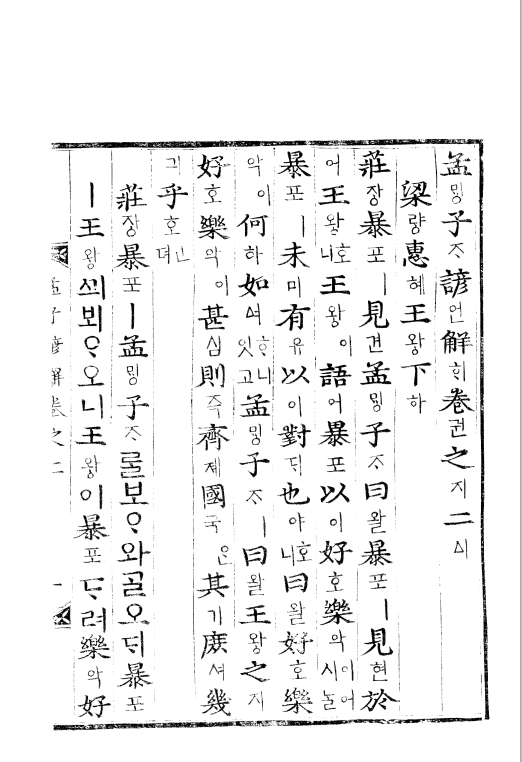 孟ᄆᆡᆼ子ᄌᆞ諺언解ᄒᆡ卷권之지二ᅀᅵ
梁량惠혜王왕下하
莊장暴포ㅣ見견孟ᄆᆡᆼ子ᄌᆞ曰왈暴포ㅣ見현於
어王왕호니王왕이語어暴포以이好호樂악이어시ᄂᆞᆯ
暴포ㅣ未미有유以이對ᄃᆡ也야호니曰왈好호樂
악이何하如여ᄒᆞ니잇고孟ᄆᆡᆼ子ᄌᆞㅣ曰왈王왕之지
好호樂악이甚심則즉齊졔國국은其기庶셔幾
긔乎호ᄂᆞᆫ뎌
莊장暴포ㅣ孟ᄆᆡᆼ子ᄌᆞᄅᆞᆯ보ᄋᆞ와ᄀᆞᆯ오ᄃᆡ暴포
ㅣ王왕ᄭᅴ뵈ᄋᆞ오니王왕이暴포ᄃᆞ려樂악好
孟子諺解卷之二 一